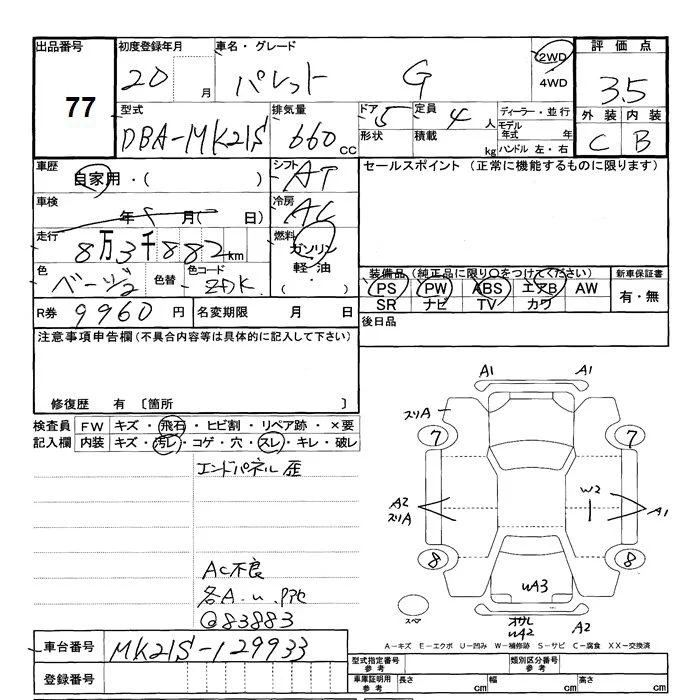 出品番号
77
初度登録年月
20 月
車名・グレード
パレット G
2WD
4WD
評価点
3.5
外装 内装
C B
型式
DBA-MK21S
排気量
660 cc
ドア 5
形状
定員 4 人
積載 kg
ディーラー・並行
モデル年式 年
ハンドル 左・右
車歴
自家用・( )
シフト
AT
車検
年 月( 日)
冷房
AC
走行
8万3千882km
燃料
ガソリン
軽・油
( ・ )
色
ベージュ2
色替
色コード
ZDK
R券 9960 円
名変期限 月 日
セールスポイント (正常に機能するものに限ります)
装備品(純正品に限り○をつけてください)
PS PW ABS エアB AW
SR ナビ TV カワ
新車保証書
有・無
後日品
注意事項申告欄(不具合内容等は具体的に記入して下さい)
修復歴 有 〔箇所 〕
検査員 FW キズ・飛石・ヒビ割・リペア跡・×要
記入欄 内装 キズ・汚レ・コゲ・穴・スレ・キレ・破レ
エンドパネル歪
AC不良
@83883
A1 A1
スリA
7 7
A2
スリA
W2
A1
8 8
UA3
スペア
オサレ
UA2
A2
A－キズ E－エクボ U－凹み W－補修跡 S－サビ C－腐食 XX－交換済
車台番号 MK21S-129933
登録番号
型式指定番号
参考
類別区分番号
参考
車庫証明用
参考
長さ cm 幅 cm 高さ cm